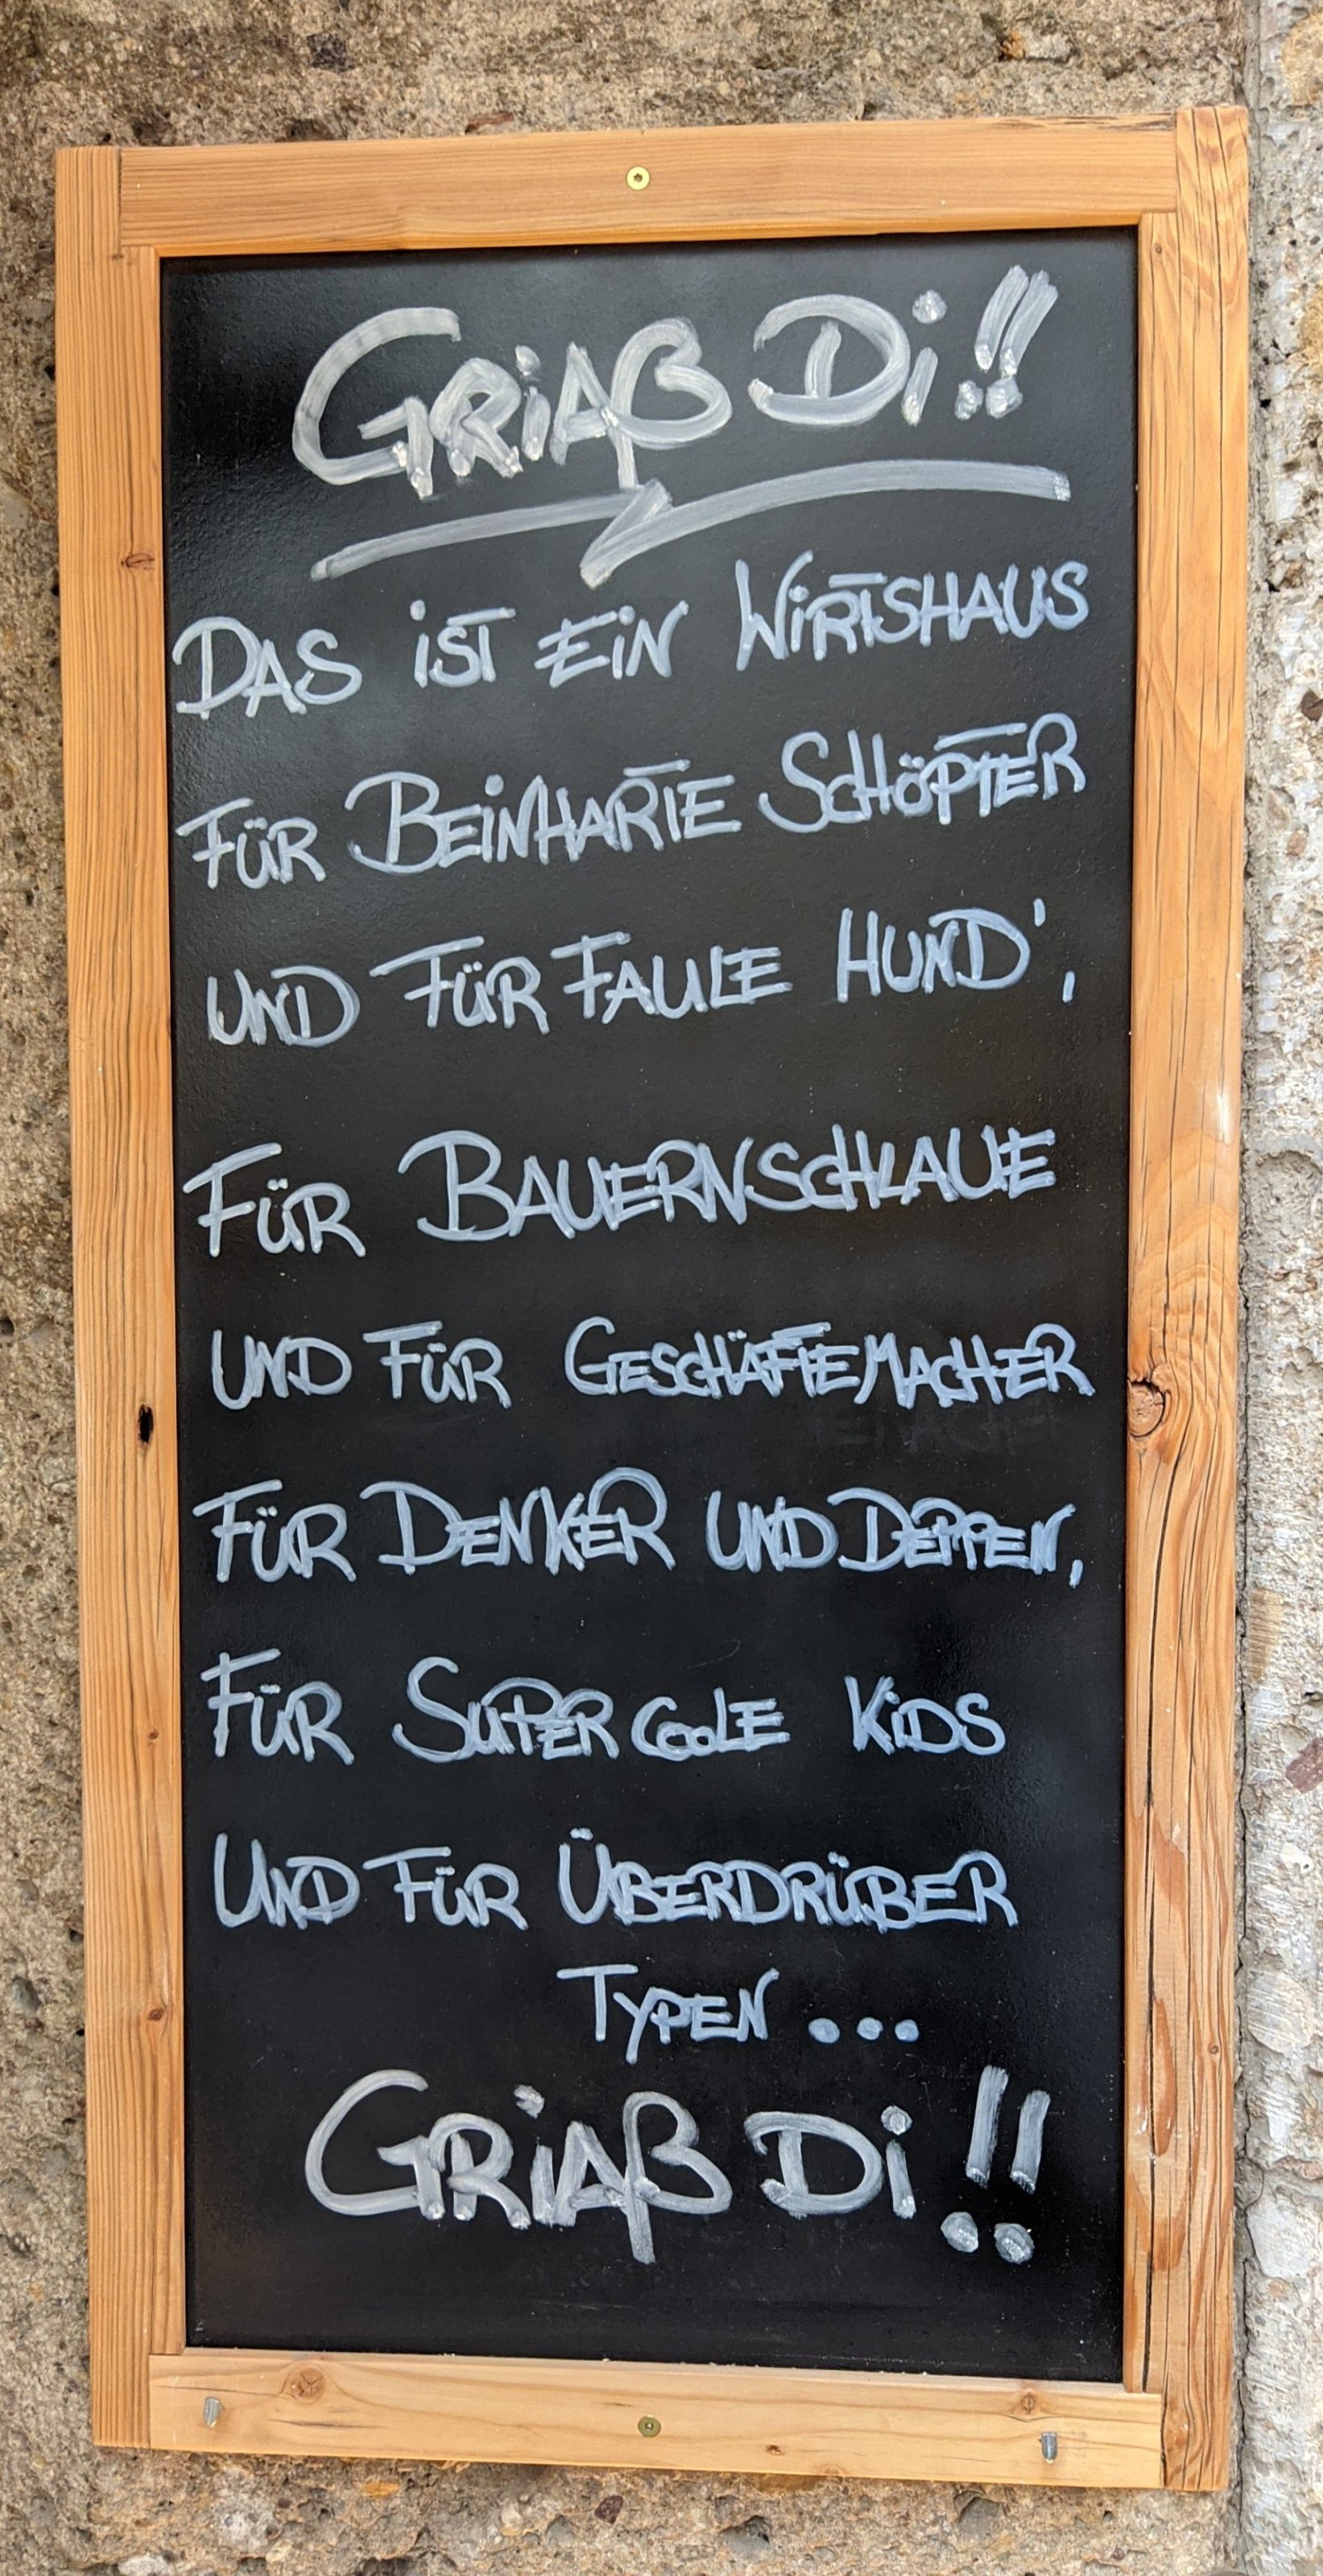 GRiAß Di!!
DAS iST EiN WiRTSHAUS
FÜR BEiNHARTE SCHÖPFER
UND FÜR FAULE HUND',
FÜR BAUERNSCHLAUE
UND FÜR GESCHÄFTEMACHER
FÜR DENKER UND DEPPEN,
FÜR SUPER COOLE KiDS
UND FÜR ÜBERDRÜBER
TYPEN ...
GRiAß Di!!